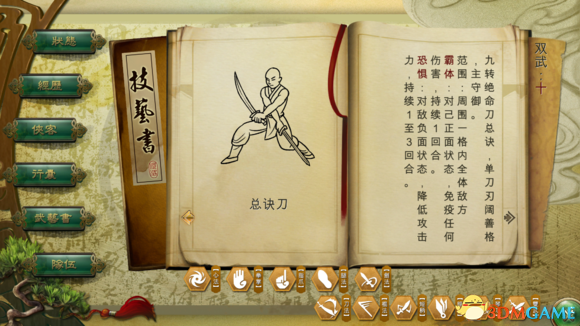 狀態
經歷
俠客
行囊
武藝書
隊伍
技藝書
总诀刀
双武：十
九转绝命刀总诀，单刀刃阔善格
，主守御。
范围：周围一格内全体敌方
霸体：对己正面状态，免疫任何
伤害，持续1回合。
恐惧：对敌负面状态，降低攻击
力，持续1至3回合。
3DMGAME